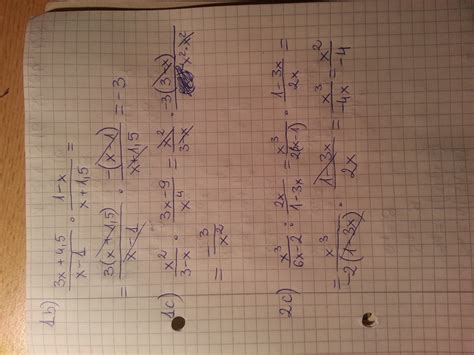 1b)
(3x + 4,5)/(x - 1) · (1 - x)/(x + 1,5) =
= 3(x + 1,5)/(x - 1) · -(x - 1)/(x + 1,5) = -3
1c)
x²/(3 - x) · (3x - 9)/x⁴ = x²/(3 - x) · -3(3 - x)/(x² · x²)
= -3/x²
2c)
x³/(6x - 2) : 2x/(1 - 3x) = x³/2(x - 1) · (1 - 3x)/2x =
= x³/-2(1 - 3x) · (1 - 3x)/2x = x³/-4x = x²/-4